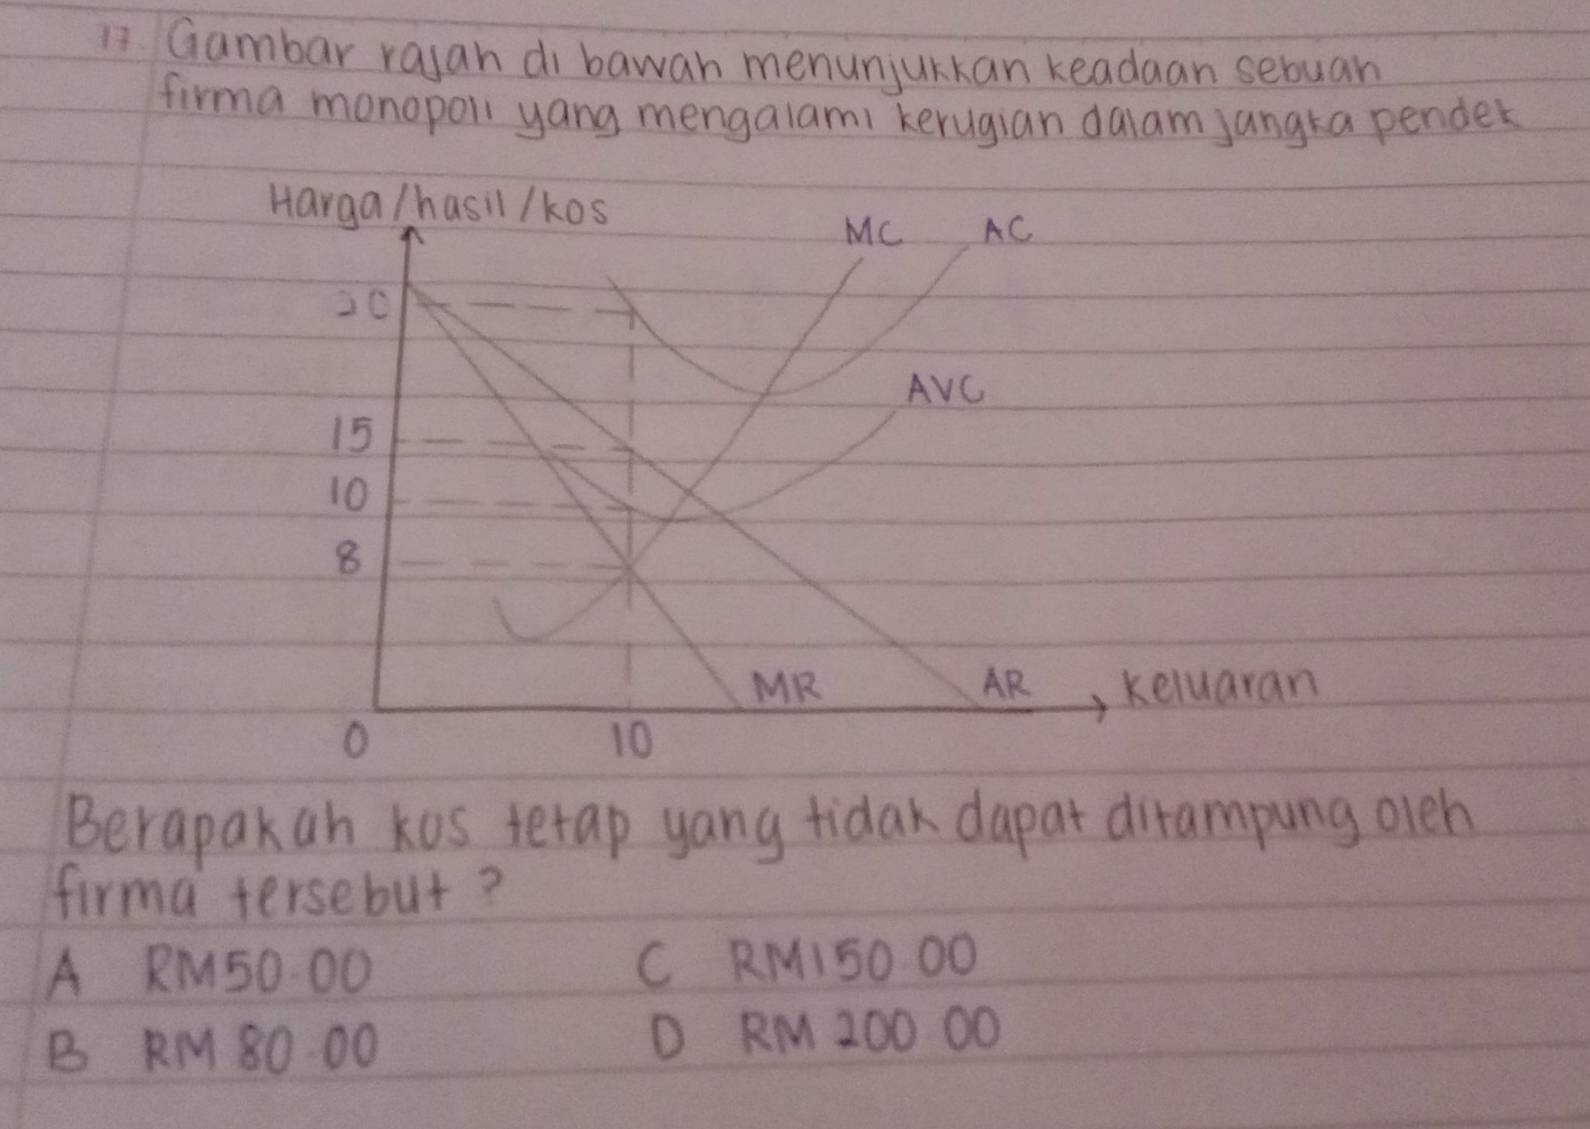 17. Gambar rajah di bawah menunjukkan keadaan sebuah
firma monopoli yang mengalami kerugian dalam jangka pendek
Harga/hasil/kos
MC AC
20
AVC
15
10
8
MR AR keluaran
0 10
Berapakah kos tetap yang tidak dapat ditampung oleh
firma tersebut?
A RM50.00 C RM150.00
B RM 80.00 D RM 200.00